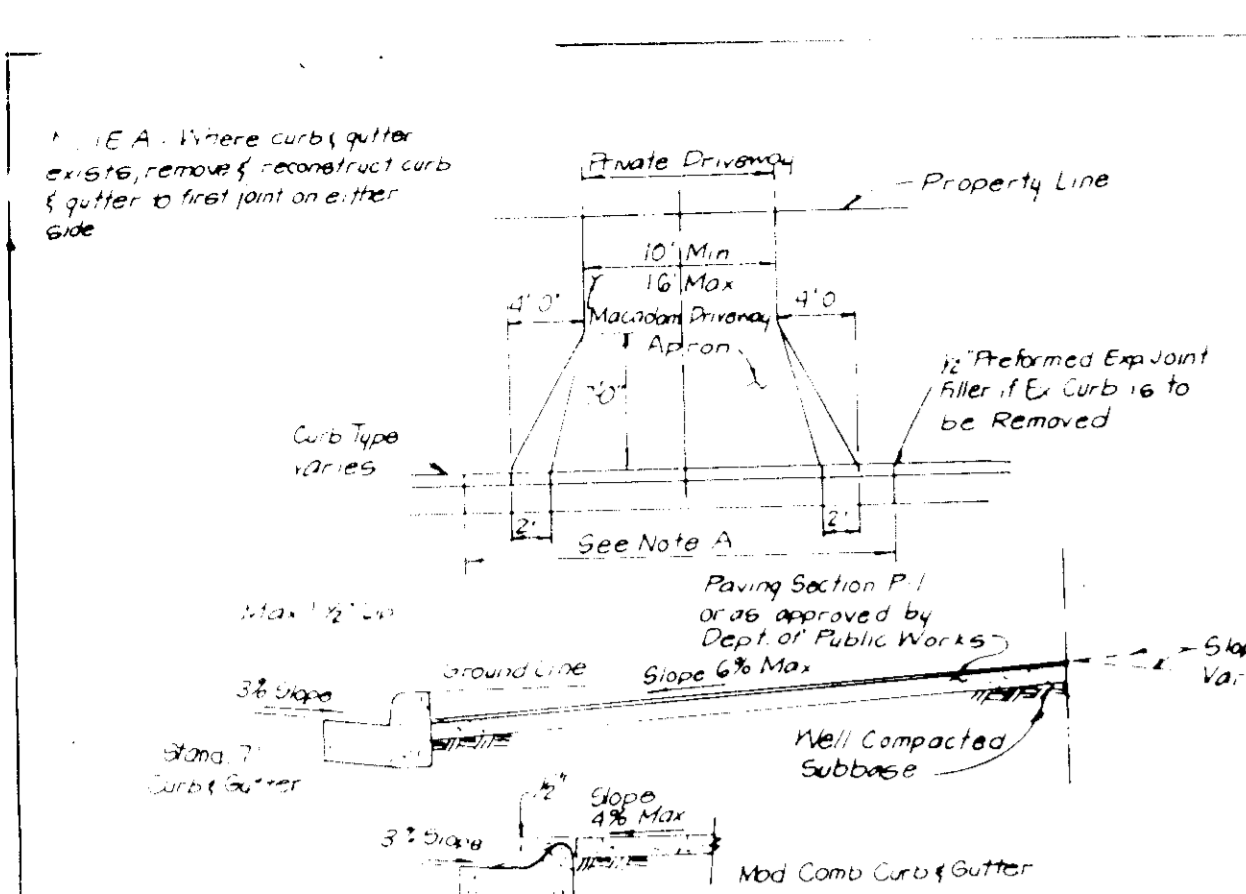 Where curb & gutter
exists, remove & reconstruct curb
& gutter to first joint on either
side
Private Driveway
Property Line
10' Min
16' Max
4'0"
4'0
Macadam Driveway
Apron
1/2" Preformed Exp Joint
Filler if Ex Curb is to
be Removed
Curb Type
varies
2'
2'
See Note A
Paving Section P-1
or as approved by
Dept. of Public Works
Max 1 1/2"
Ground Line
Slope 6% Max
3% Slope
Stand. 7"
Curb & Gutter
Well Compacted
Subbase
Slope
4% Max
3% Slope
Mod Comb Curb & Gutter